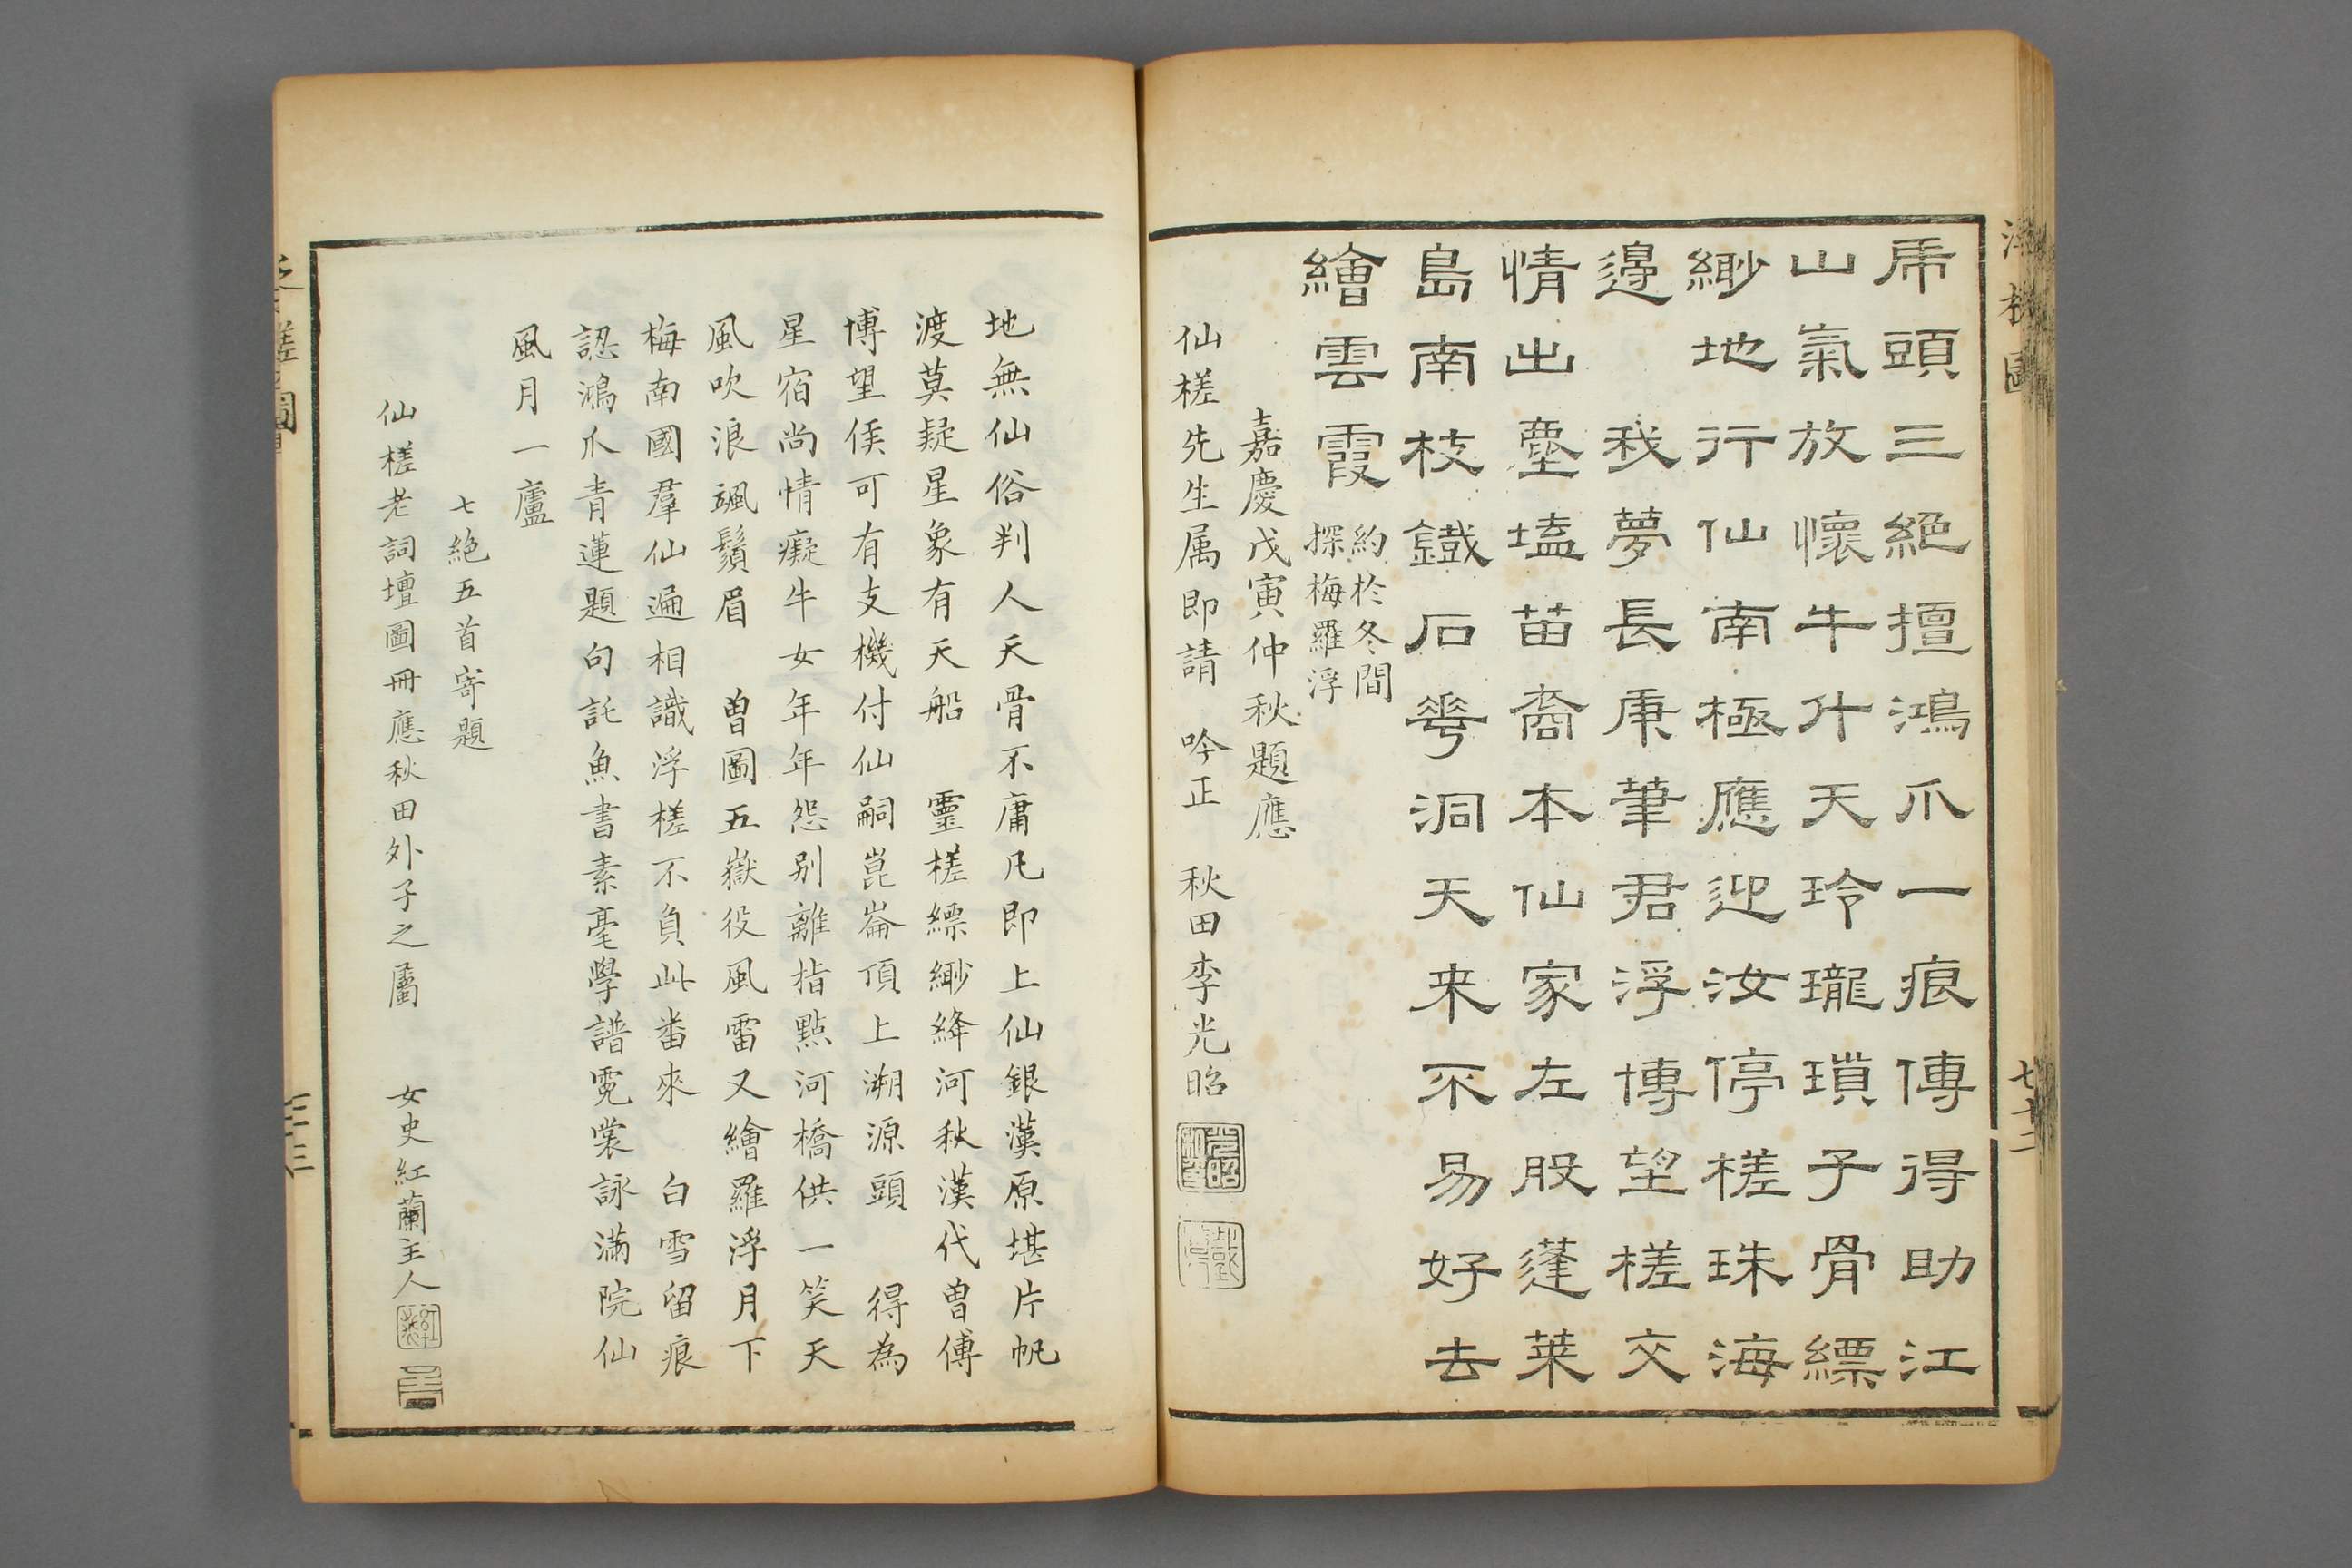 虎頭三絕擅鴻爪一痕傳得助江
山氣放懷牛什天玲瓏瑣子骨縹
緲地行仙南極應迎汝停槎珠海
邊　我夢長庚筆君浮博望槎交
情出塵壒苗裔本仙家左股蓬萊
島南枝鐵石𠌶洞天来不易好去
繪雲霞
約於冬間
探梅羅浮
嘉慶戊寅仲秋題應
仙槎先生属即請　吟正　秋田李光昭
地無仙俗判人天骨不庸凡即上仙銀漢原堪片帆
渡莫疑星象有天船　靈槎縹緲絳河秋漢代曾傳
博望侯可有支機付仙嗣崑崙頂上溯源頭　得為
星宿尚情癡牛女年年怨别離指點河橋供一笑天
風吹浪颯鬚眉　曾圖五嶽役風雷又繪羅浮月下
梅南國羣仙遍相識浮槎不負此番來　白雪留痕
認鴻爪青蓮題句託魚書素毫學譜霓裳詠滿院仙
風月一廬
七絕五首寄題
仙槎老詞壇圖冊應秋田外子之屬　女史紅蘭主人